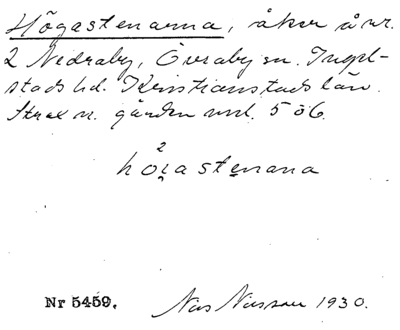 Högastenarna, åker å nr.
2 Nedraby, Övraby sn. Ingel-
stads hd. Kristianstads län.
Strax n. gården nr. 5 o 6.
2
högastenana
Nr 5459.
Nils Nilsson 1930.